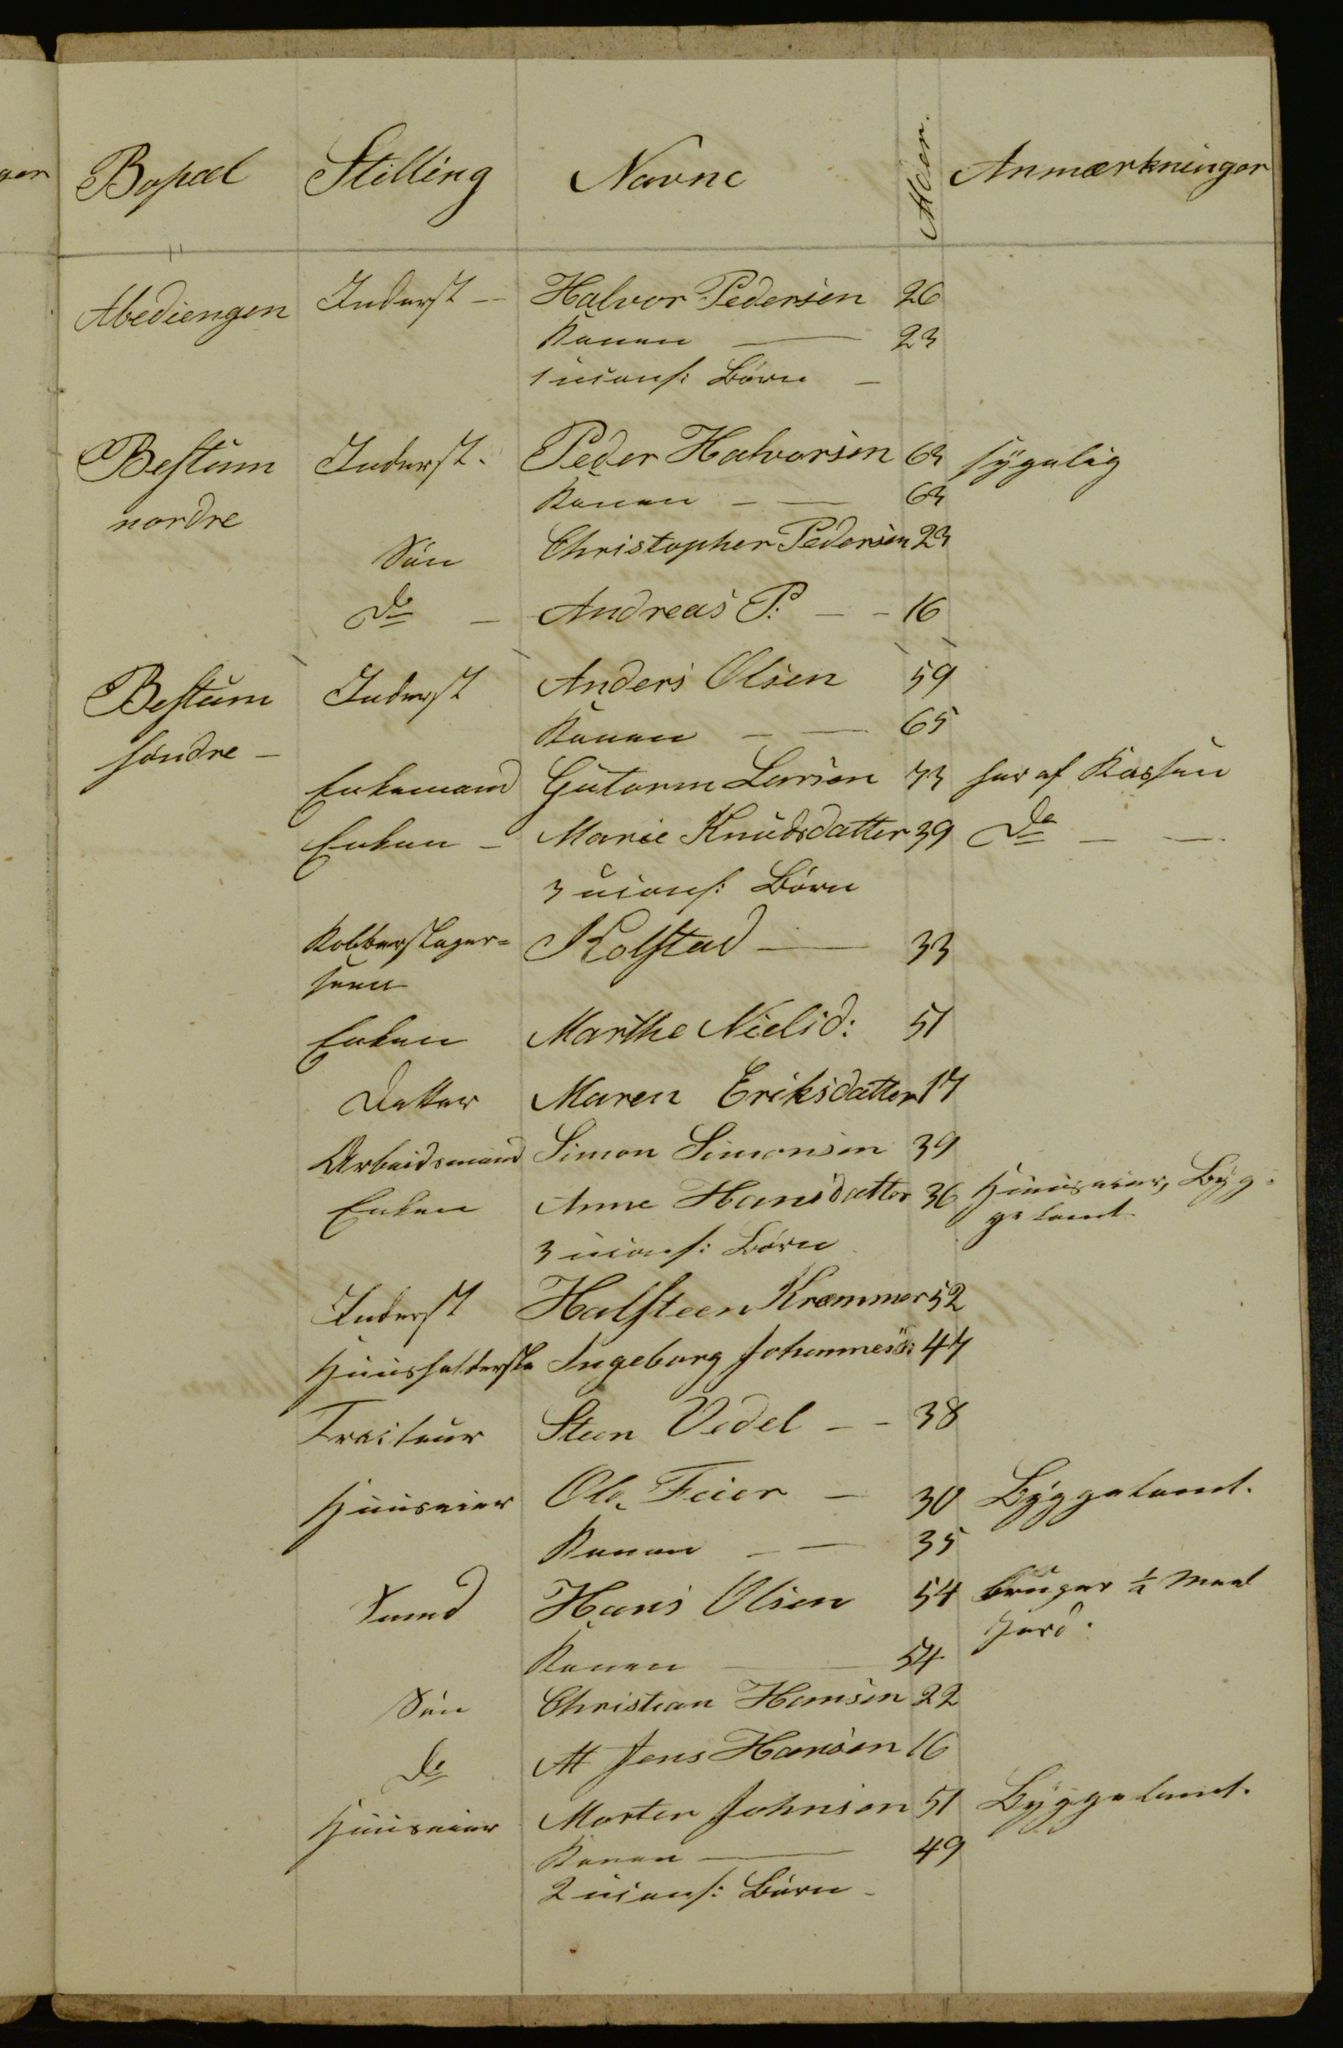 Bopæl Stilling Navne Alder. Anmærkninger
Abediengen Inderst — Halvor Pedersen 26
Konen — 23
1 uconf: Børn —
Bestum Inderst. Peder Halvorsen 63 sygelig
nordre Konen — — 63
Søn Christopher Pedersen 23
Do — Andreas P: — — 16
Bestum Inderst Anders Olsen 59
søndre — Konen — — 65
Enkemand Gutorm Larsen 73 har af Kassen
Enken — Marie Knudsdatter 39 Do — —
3 uconf: Børn
Kobberslager= Kolstad — 33
sven
Enken Marthe Nielsd: 51
Datter Maren Eriksdatter 17
Arbeidsmand Simon Simonsen 39
Enken Anne Hansdatter 36 Huuseier, Byg-
getomt
3 uconf: Børn
Inderst Halsteen Kræmmer 52
Huusholderske Ingeborg Johannesd: 47
Traiteur Steen Vedel — — 38
Huuseier Ole Feier — 30 Byggetomt.
Konen — — 35
Hans Olsen 54 bruger ½ Maal
Jord.
Konen — 54
Søn Christian Hansen 22
Do A Jens Hansen 16
Huuseier Morten Johnsen 51 Byggetomt.
Konen — 49
2 uconf: Børn —